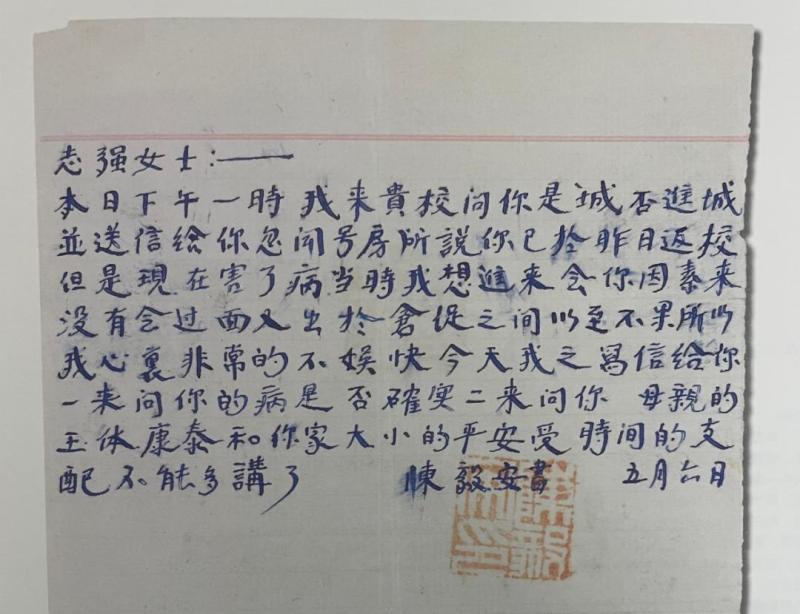 志强女士：——
本日下午一時我来貴校问你是城否進城
並送信给你忽闻号房所說你已於昨日返校
但是現在害了病当時我想進来会你因素来
没有会过面又出於倉促之间以至不果所以
我心裏非常的不娱快今天我之寫信给你
一来问你的病是否確实二来问你 母親的
玉体康泰和你家大小的平安受時间的支
配不能多講了 陳毅安書 五月六日